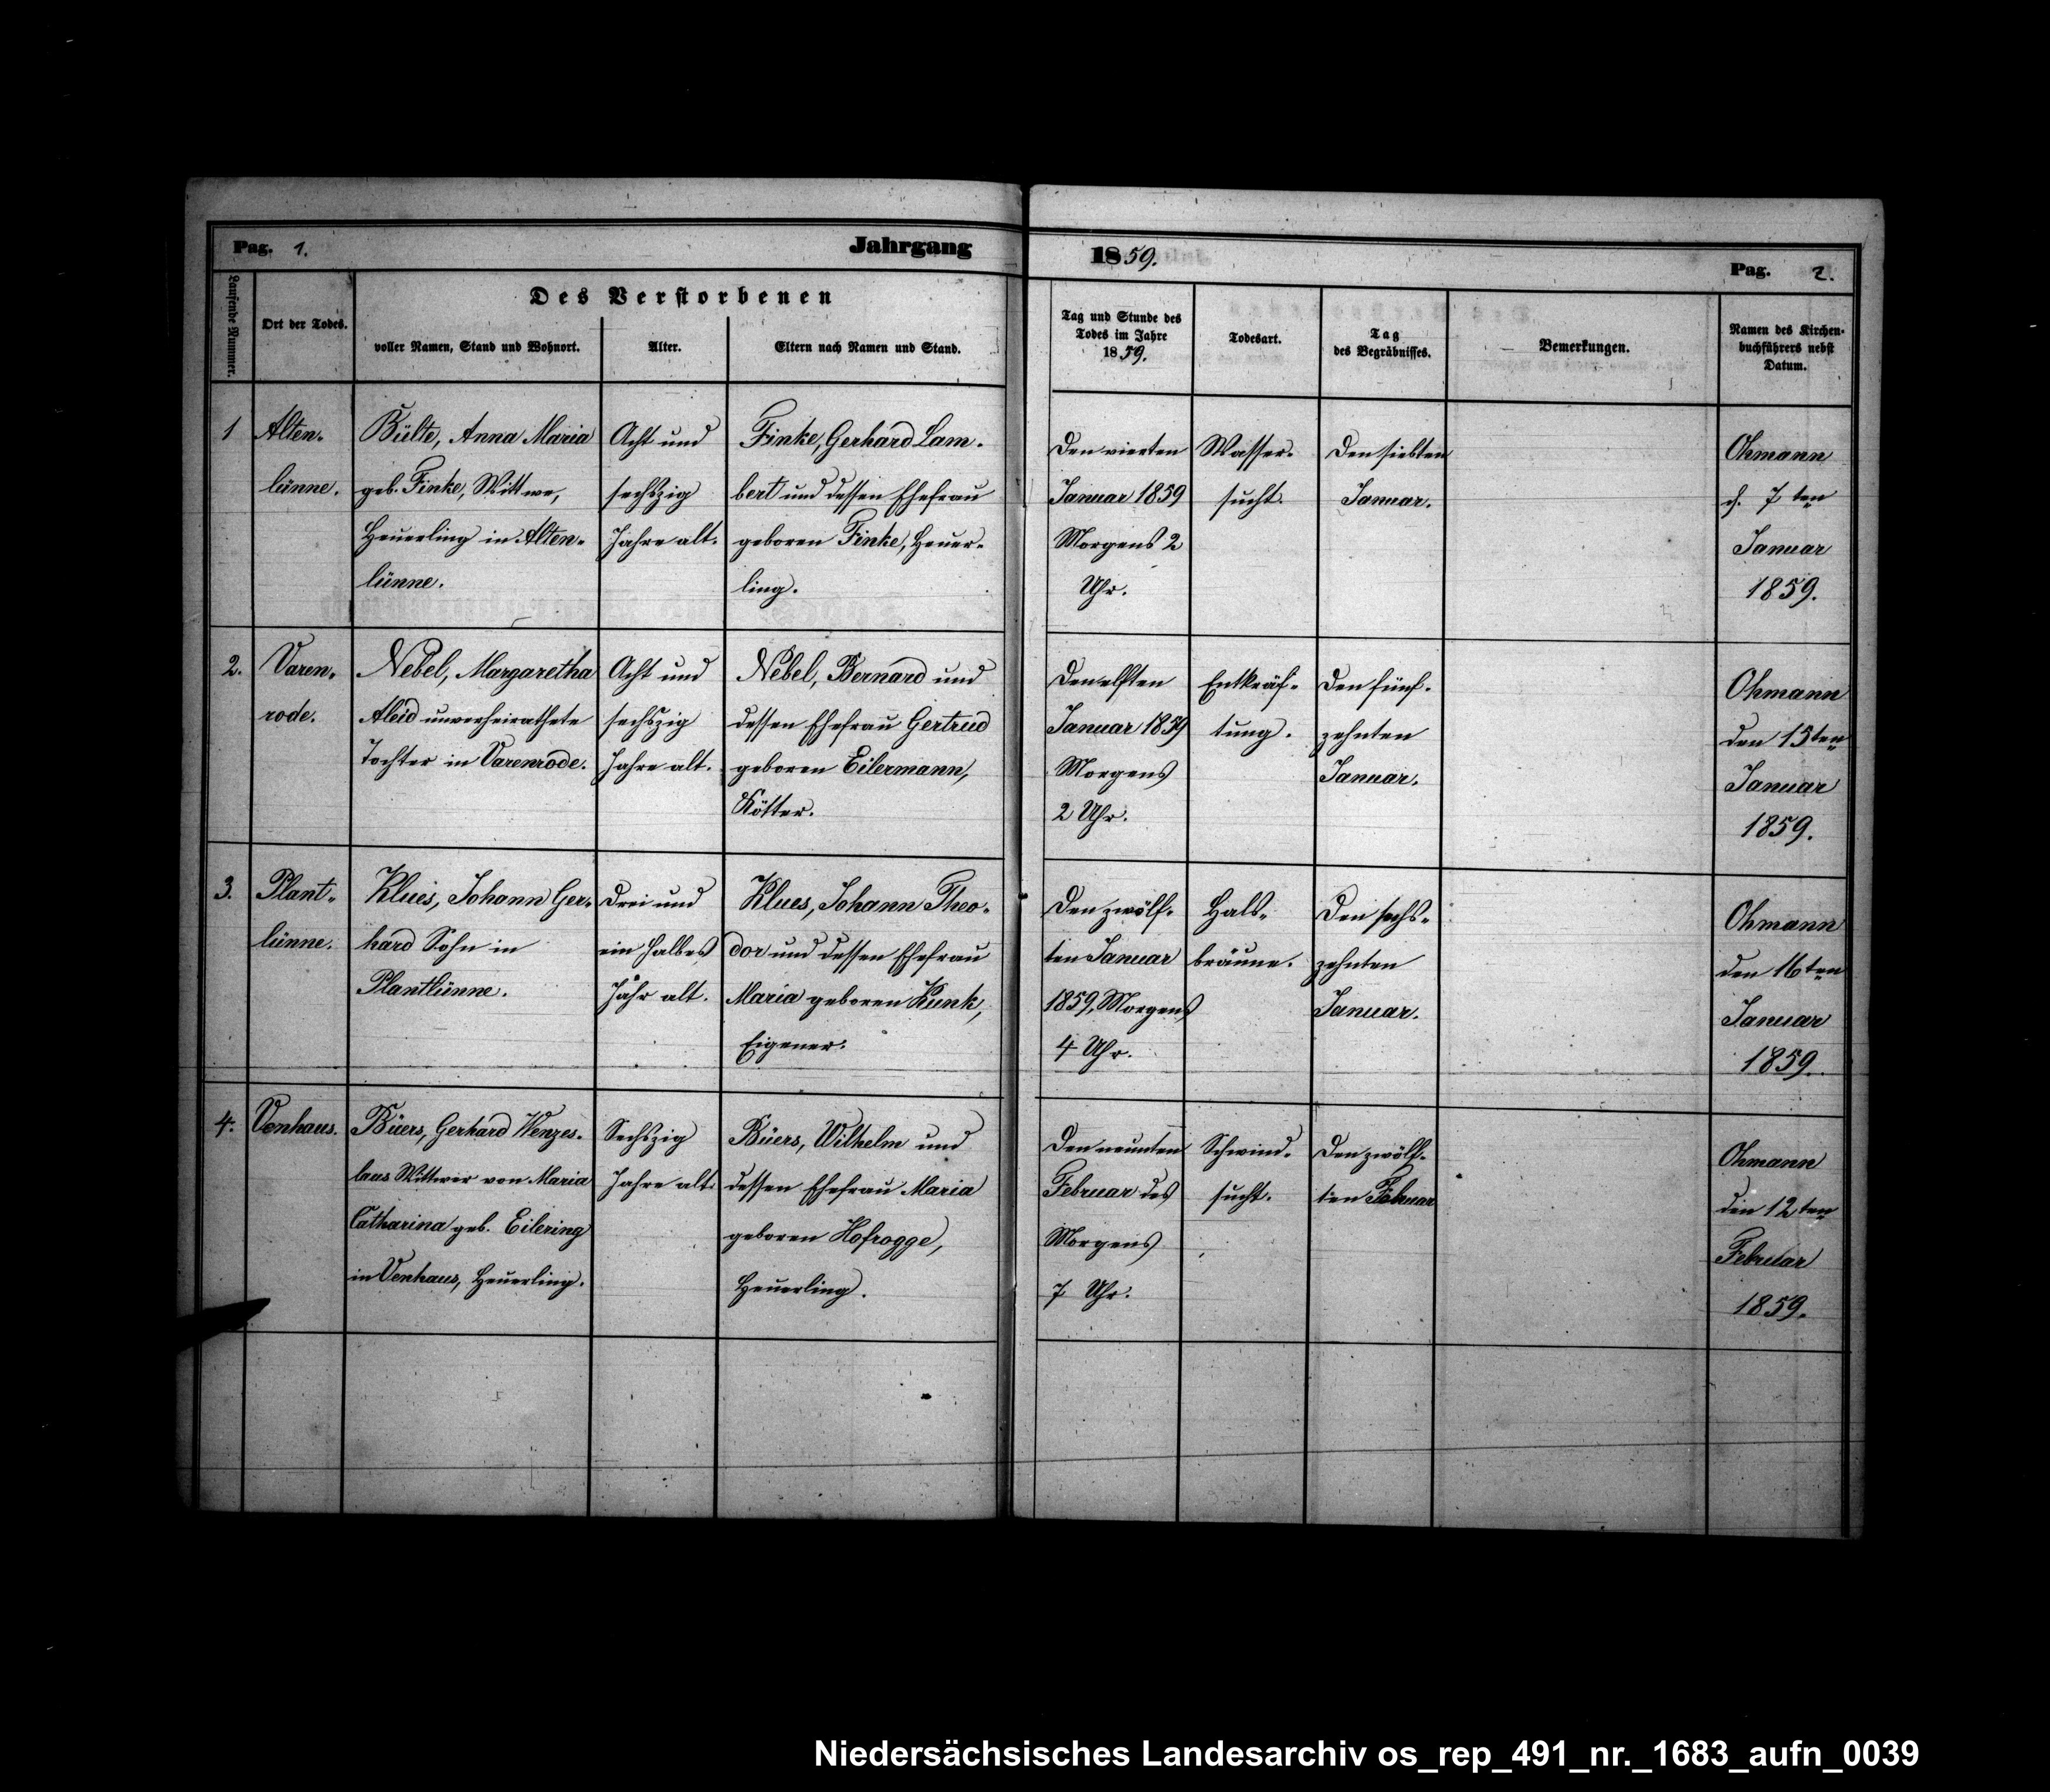 Pag. 1.
Jahrgang
1859.
Pag. 2.
Laufende Nummer.
Ort der Todes.
Des Verstorbenen
voller Namen, Stand und Wohnort.
Alter.
Eltern nach Namen und Stand.
Tag und Stunde des
Todes im Jahre
1859.
Todesart.
Tag
des Begräbnisses.
Bemerkungen.
Namen des Kirchen-
buchführers nebst
Datum.
1
Alten-
lünne.
Bülte, Anna Maria
geb. Finke, Wittwe,
Heuerling in Alten-
lünne.
Acht und
sechszig
Jahre alt.
Finke, Gerhard Lam-
bert und dessen Ehefrau
geboren Finke, Heuer-
ling.
Den vierten
Januar 1859
Morgens 2
Uhr.
Wasser-
sucht.
Den siebten
Januar.
Ohmann
d. 7ten
Januar
1859.
2.
Varen-
rode.
Nebel, Margaretha
Aleid unverheirathete
Tochter in Varenrode.
Acht und
sechszig
Jahre alt.
Nebel, Bernard und
dessen Ehefrau Gertrud
geboren Eilermann,
Kötter.
Den elften
Januar 1859
Morgens
2 Uhr.
Entkräf-
tung.
Den fünf-
zehnten
Januar.
Ohmann
den 15ten
Januar
1859.
3.
Plant-
lünne.
Klues, Johann Ger-
hard Sohn in
Plantlünne.
Drei und
ein halbes
Jahr alt.
Klues, Johann Theo-
dor und dessen Ehefrau
Maria geboren Kunk,
Eigener.
Den zwölf-
ten Januar
1859, Morgens
4 Uhr.
Hals-
bräune.
Den sechs-
zehnten
Januar.
Ohmann
den 16ten
Januar
1859.
4.
Venhaus.
Büers, Gerhard Wenzes-
laus Wittwer von Maria
Catharina geb. Eilering
in Venhaus, Heuerling.
Sechszig
Jahre alt.
Büers, Wilhelm und
dessen Ehefrau Maria
geboren Hofrogge,
Heuerling.
Den neunten
Februar des
Morgens
7 Uhr.
Schwind-
sucht.
Den zwölf-
ten Februar
Ohmann
den 12ten
Februar
1859.
Niedersächsisches Landesarchiv os_rep_491_nr._1683_aufn_0039